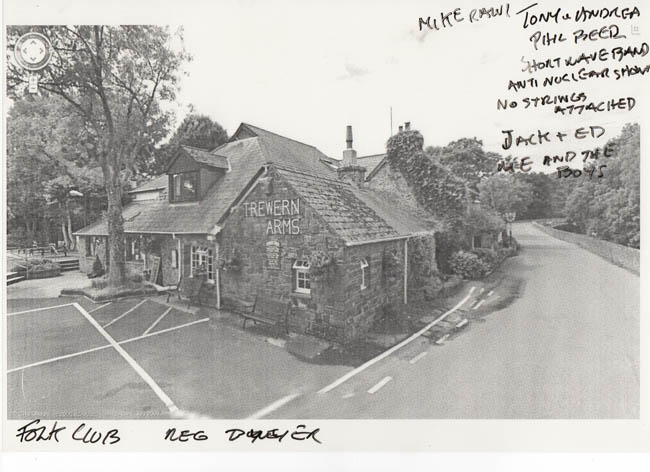 MIKE RAWL
TONY & ANDREA
PHIL BEER
SHORTWAVE BAND
ANTI NUCLEAR SHOW
NO STRINGS
ATTACHED
JACK + ED
ME AND THE
BOYS
TREWERN
ARMS
FOLK CLUB REG